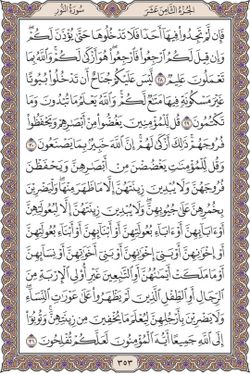 الجزء الثامن عشر
سورة النور
فَإِن لَّمْ تَجِدُوا۟ فِيهَآ أَحَدًا فَلَا تَدْخُلُوهَا حَتَّىٰ يُؤْذَنَ لَكُمْ
وَإِن قِيلَ لَكُمُ ٱرْجِعُوا۟ فَٱرْجِعُوا۟ هُوَ أَزْكَىٰ لَكُمْ وَٱللَّهُ بِمَا
تَعْمَلُونَ عَلِيمٌ ٢٨ لَّيْسَ عَلَيْكُمْ جُنَاحٌ أَن تَدْخُلُوا۟ بُيُوتًا
غَيْرَ مَسْكُونَةٍ فِيهَا مَتَٰعٌ لَّكُمْ وَٱللَّهُ يَعْلَمُ مَا تُبْدُونَ وَمَا
تَكْتُمُونَ ٢٩ قُل لِّلْمُؤْمِنِينَ يَغُضُّوا۟ مِنْ أَبْصَٰرِهِمْ وَيَحْفَظُوا۟
فُرُوجَهُمْ ذَٰلِكَ أَزْكَىٰ لَهُمْ إِنَّ ٱللَّهَ خَبِيرٌۢ بِمَا يَصْنَعُونَ ٣٠
وَقُل لِّلْمُؤْمِنَٰتِ يَغْضُضْنَ مِنْ أَبْصَٰرِهِنَّ وَيَحْفَظْنَ
فُرُوجَهُنَّ وَلَا يُبْدِينَ زِينَتَهُنَّ إِلَّا مَا ظَهَرَ مِنْهَا وَلْيَضْرِبْنَ
بِخُمُرِهِنَّ عَلَىٰ جُيُوبِهِنَّ وَلَا يُبْدِينَ زِينَتَهُنَّ إِلَّا لِبُعُولَتِهِنَّ
أَوْ ءَابَآئِهِنَّ أَوْ ءَابَآءِ بُعُولَتِهِنَّ أَوْ أَبْنَآئِهِنَّ أَوْ أَبْنَآءِ بُعُولَتِهِنَّ
أَوْ إِخْوَٰنِهِنَّ أَوْ بَنِىٓ إِخْوَٰنِهِنَّ أَوْ بَنِىٓ أَخَوَٰتِهِنَّ أَوْ نِسَآئِهِنَّ
أَوْ مَا مَلَكَتْ أَيْمَٰنُهُنَّ أَوِ ٱلتَّٰبِعِينَ غَيْرِ أُو۟لِى ٱلْإِرْبَةِ مِنَ
ٱلرِّجَالِ أَوِ ٱلطِّفْلِ ٱلَّذِينَ لَمْ يَظْهَرُوا۟ عَلَىٰ عَوْرَٰتِ ٱلنِّسَآءِ
وَلَا يَضْرِبْنَ بِأَرْجُلِهِنَّ لِيُعْلَمَ مَا يُخْفِينَ مِن زِينَتِهِنَّ وَتُوبُوٓا۟
إِلَى ٱللَّهِ جَمِيعًا أَيُّهَ ٱلْمُؤْمِنُونَ لَعَلَّكُمْ تُفْلِحُونَ ٣١
٣٥٣